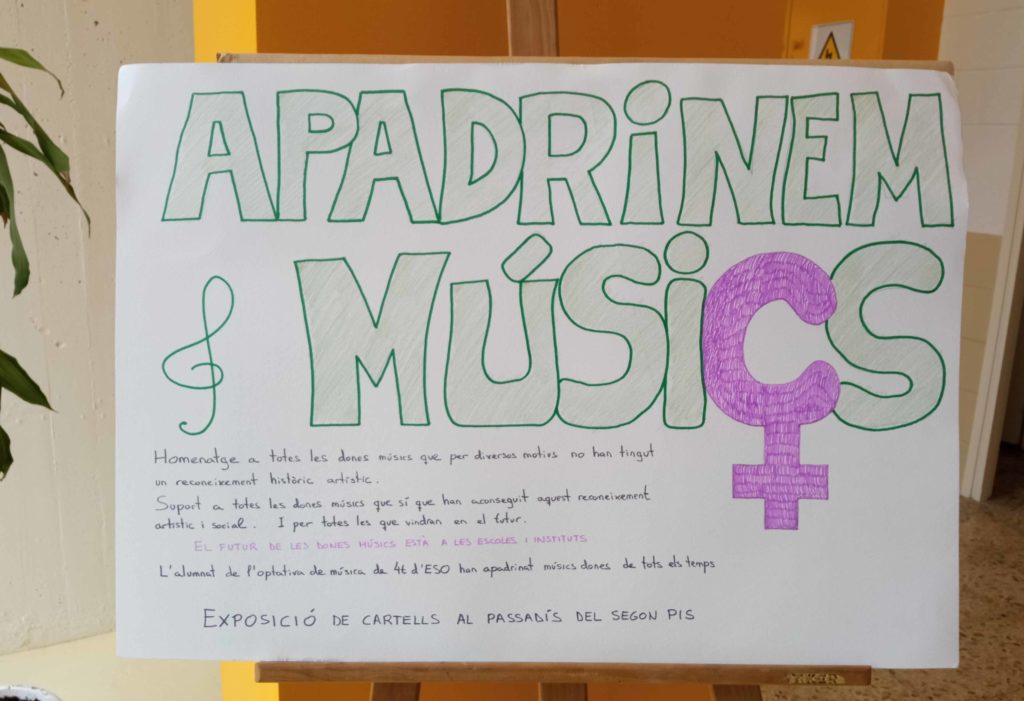 APADRINEM
MÚSICS
Homenatge a totes les dones músics que per diversos motius no han tingut
un reconeixement històric artístic.
Suport a totes les dones músics que sí que han aconseguit aquest reconeixement
artístic i social. I per totes les que vindran en el futur.
EL FUTUR DE LES DONES MÚSICS ESTÀ A LES ESCOLES I INSTITUTS
L'alumnat de l'optativa de música de 4t d'ESO han apadrinat músics dones de tots els temps
EXPOSICIÓ DE CARTELLS AL PASSADÍS DEL SEGON PIS